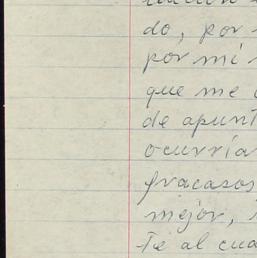 do, por
por mi
que me
de apunt
ocurría
fracasos
mejor,
te al cua